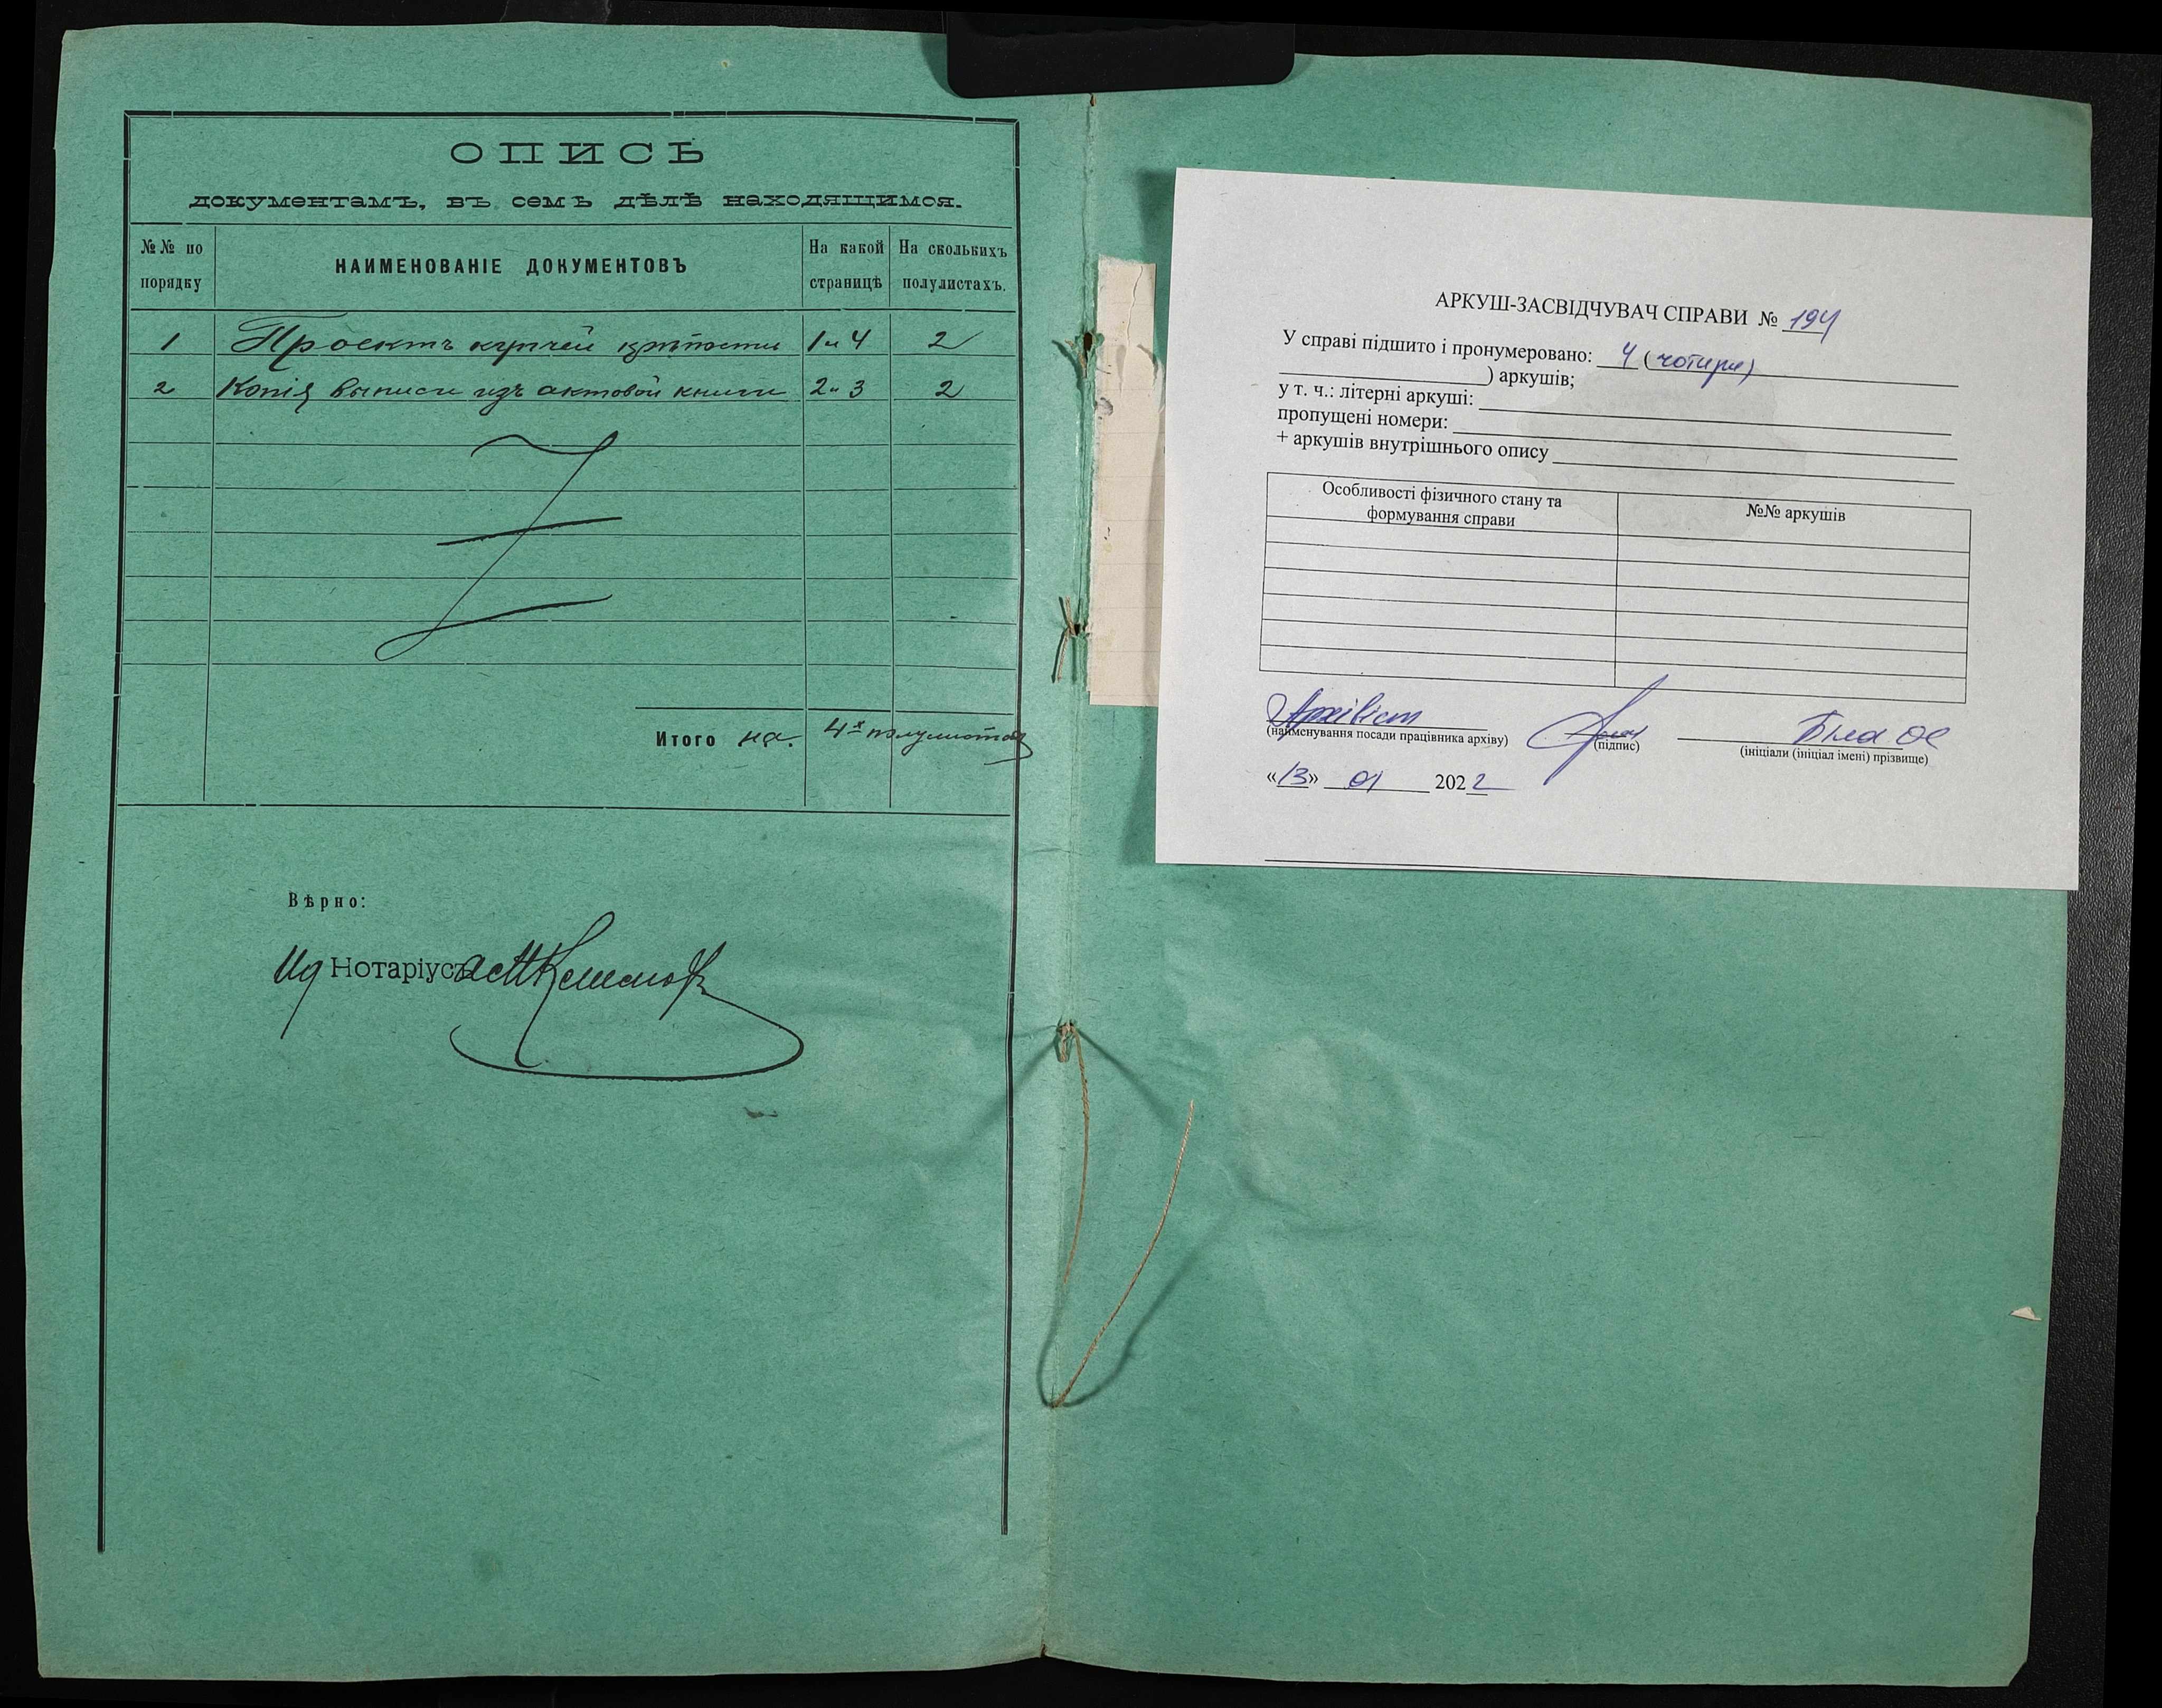 ОПИСЬ
документамъ, въ семъ дѣлѣ находящимся.
№№ по порядку
НАИМЕНОВАНІЕ ДОКУМЕНТОВЪ
На какой страницѣ
На сколькихъ полулистахъ.
1 Проектъ купчей крѣпости 1 и 4 2
2 Копія выписи изъ актовой книги 2 и 3 2
Итого на 4х полулистахъ
Вѣрно:
Ид Нотаріуса
АРКУШ-ЗАСВІДЧУВАЧ СПРАВИ № 194
У справі підшито і пронумеровано: 4 (чотири)
) аркушів;
у т. ч.: літерні аркуші:
пропущені номери:
+ аркушів внутрішнього опису
Особливості фізичного стану та формування справи
№№ аркушів
Архівіст Біла ОС
(найменування посади працівника архіву) (підпис) (ініціали (ініціал імені) прізвище)
«13» 01 2022